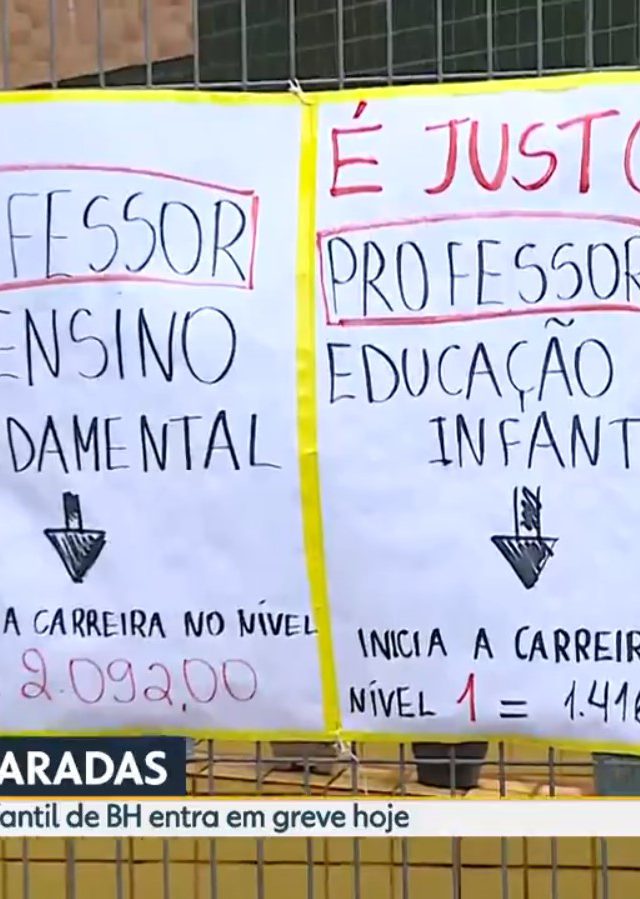 FESSOR
ENSINO
DAMENTAL
A CARREIRA NO NÍVEL
2.092,00
É JUSTO
PROFESSOR
EDUCAÇÃO
INFANT
INICIA A CARREIR
NÍVEL 1 = 1.416
ARADAS
fantil de BH entra em greve hoje